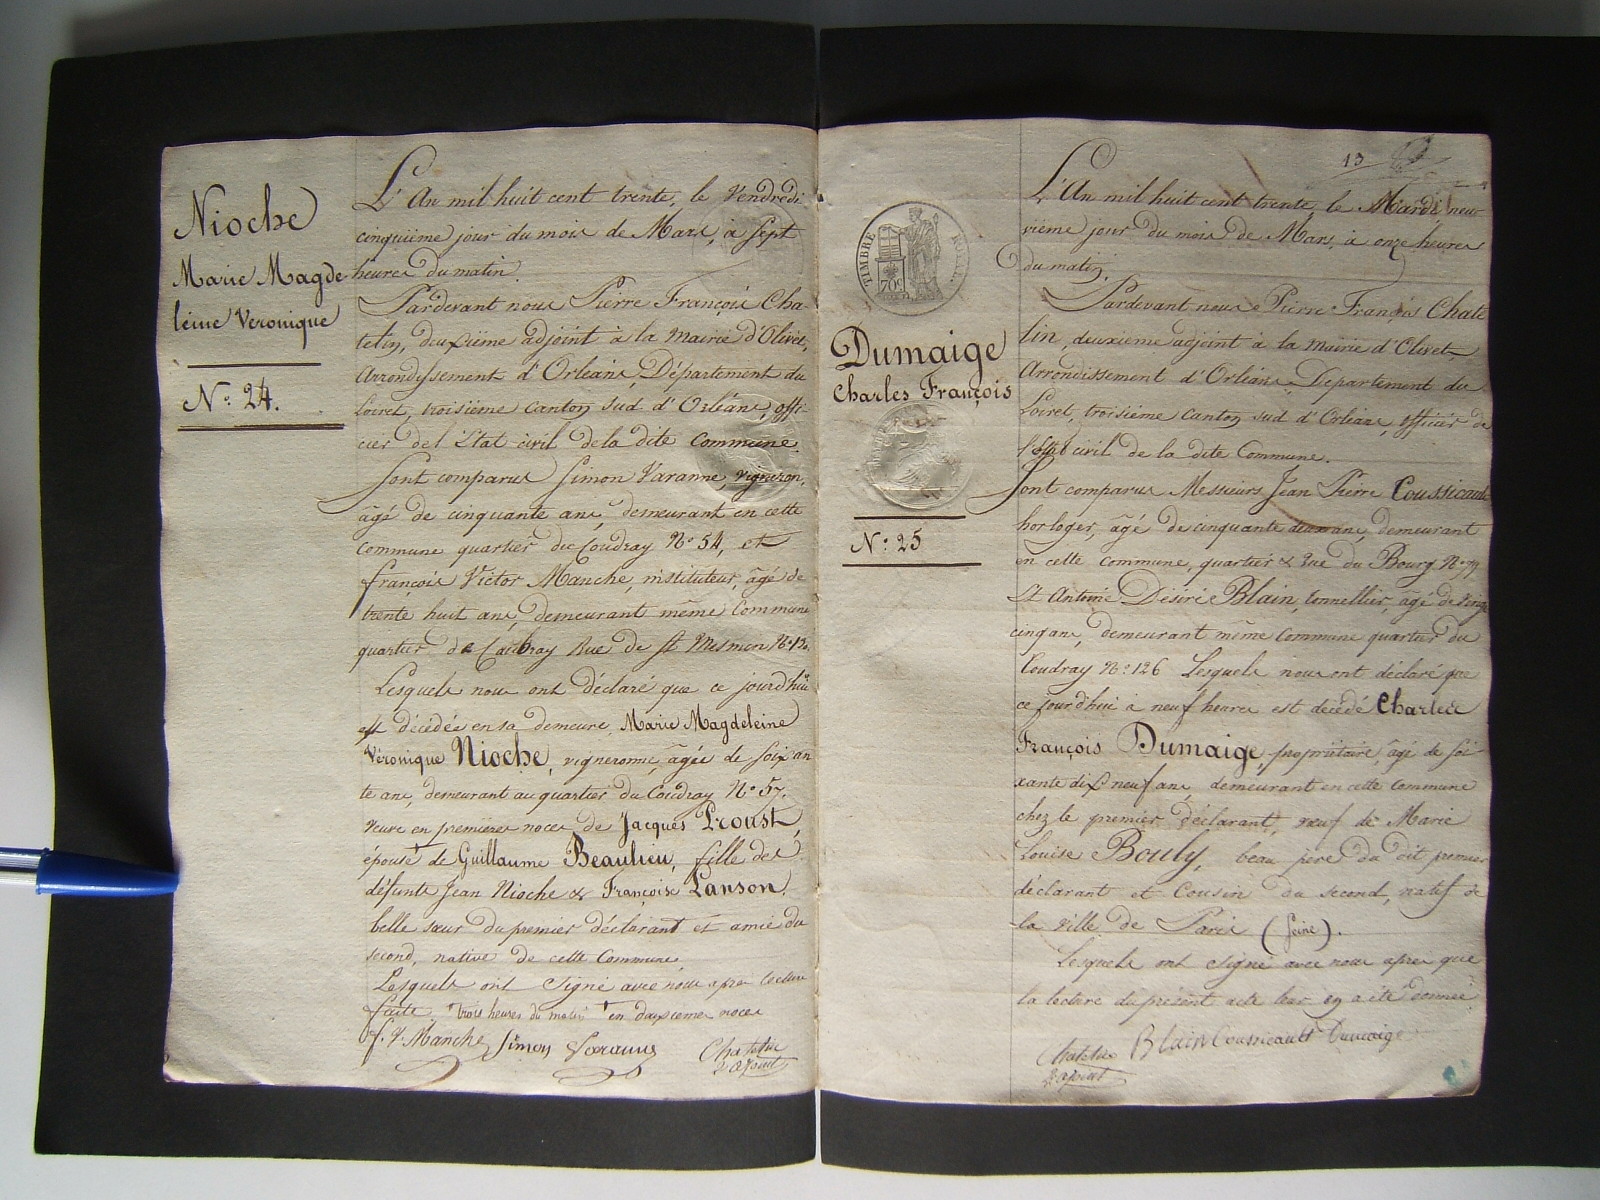 Nioche
Marie Magde
leine Veronique
N.º 24.
L'An mil huit cent trente, le Vendredi
cinquiième jour du mois de Mars, à Sept
heures du matin
Pardevant nous Pierre François Cha-
telin, deuxième adjoint à la Mairie d'Olivet,
Arrondissement d'Orléans, Département du
Loiret, troisième Canton sud d'Orléans, offi-
cier de l'Etat civil de la dite Commune.
Sont comparus Simon Varanne, vigneron,
âgé de cinquante ans, demeurant en cette
commune quartier du Coudray N.º 54, et
françois Victor Manche, instituteur, âgé de
trente huit ans, demeurant même Commune
quartier de Caubray Rue de St Mesmin N.º
Lesquels nous ont déclaré que ce jourd'hui
est décédée en sa demeure, Marie Magdeleine
Véronique Nioche, vigneronne, âgée de soixan
te ans, demeurant au quartier du Coudray N.º 57.
veuve en premieres noces de Jacques Proust,
épouse de Guillaume Beaulieu, fille des
défunts Jean Nioche & Françoise Lanson,
belle sœur du premier déclarant et amie du
second, native de cette Commune,
Lesquels ont Signé avec nous apres lecture
faite, trois heures du matin en deuxieme noces
f. V. Manche Simon Varanne Chatelin
2e adjoint
13
TIMBRE ROYAL
70c
Dumaige
Charles François
N.º 25
L'An mil huit cent trente, le Mardi neu-
vième jour du mois de Mars, à onze heures
du matin.
Pardevant nous Pierre François Chate
lin, deuxieme adjoint à la Mairie d'Olivet,
Arrondissement d'Orléans, Departement du
Loiret, troisiéme Canton sud d'Orléans, officier de
l'Etat civil de la dite Commune.
Sont comparus Messieurs Jean Pierre Coussicault
horloger, âgé de cinquante deux ans, demeurant
en cette commune, quartier & Rue du Bourg N.º
Et Antoine Désiré Blain, tonnellier, âgé de vingt
cinq ans, demeurant même Commune quartier du
Coudray N.º 126 Lesquels nous ont déclaré que
ce jourd'hui à neuf heures est décédé Charles
François Dumaige, propriétaire, âgé de soi-
xante dix neuf ans, demeurant en cette Commune
chez le premier déclarant, veuf de Marie
Louise Bouly, beau père du dit premier
déclarant et Cousin du second, natif de
la ville de Paris (Seine).
Lesquels ont Signé avec nous apres que
la lecture du présent acte leur en a été donnée
Chatelin Blain Coussicault Dumaige
2e adjoint